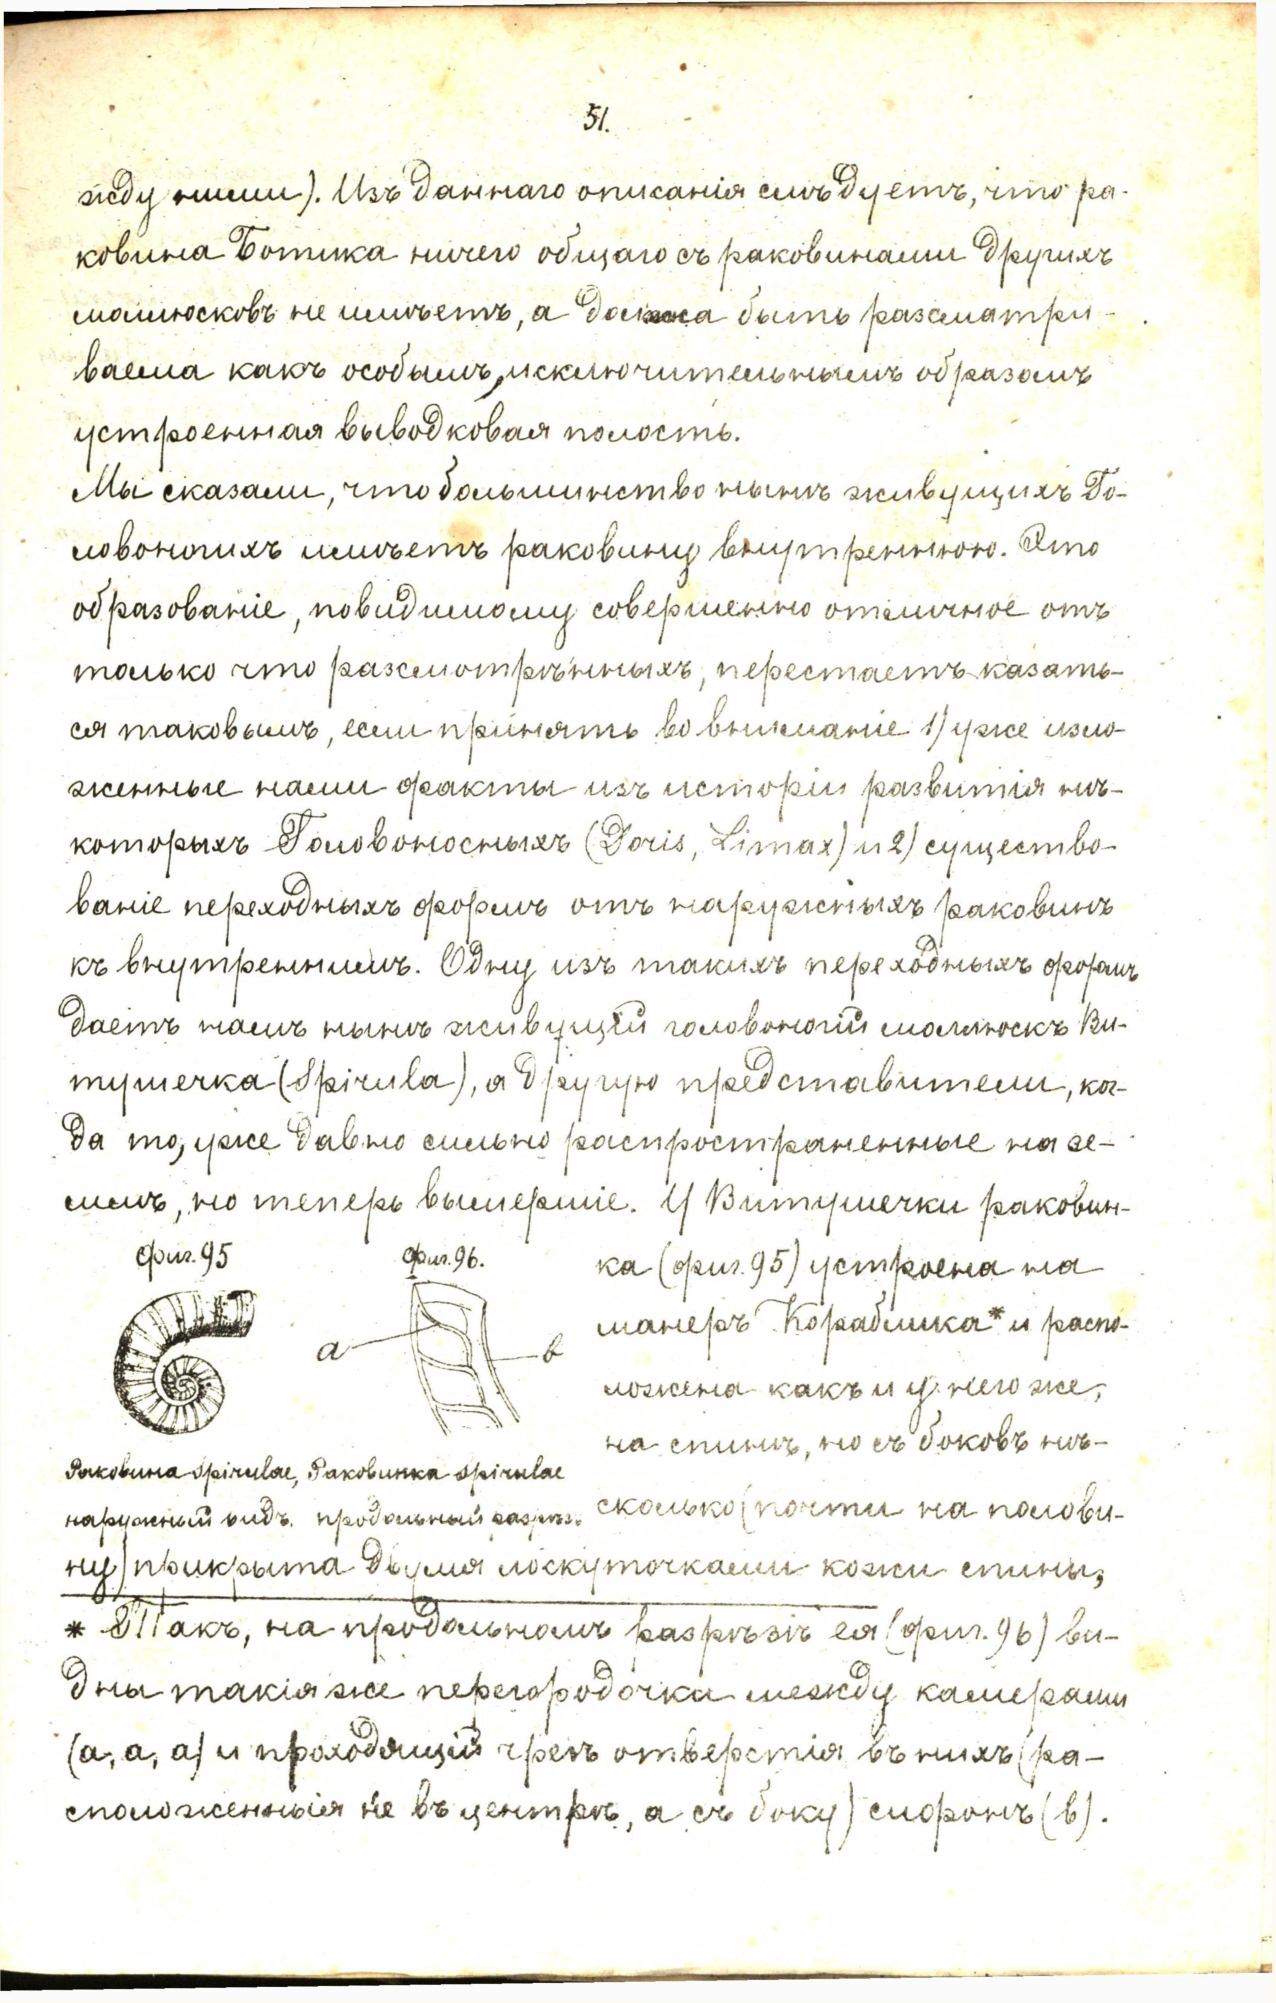 51.
жду ними). Изъ даннаго описанія слѣдуетъ, что ра-
ковина Ботика ничего общаго съ раковинами другихъ
моллюсковъ не имѣетъ, а должна быть разсматри-
ваема какъ особымъ, исключительнымъ образомъ
устроенная выводковая полость.
Мы сказали, что большинство нынѣ живущихъ Го-
ловоногихъ имѣетъ раковину внутреннюю. Это
образованіе, повидимому совершенно отличное отъ
только что разсмотрѣнныхъ, перестаетъ казать-
ся таковымъ, если принять во вниманіе 1) уже изло-
женные нами факты изъ исторіи развитія нѣ-
которыхъ Головоносныхъ (Doris, Limax) и 2) существо-
ваніе переходныхъ формъ отъ наружныхъ раковинъ
къ внутреннимъ. Одну изъ такихъ переходныхъ формъ
даетъ намъ нынѣ живущій головоногій моллюскъ Ви-
тушечка (Spirula), а другую представители, ког-
да то, уже давно сильно распространенные на зе-
млѣ, но теперь вымершіе. У Витушечки раковин-
фиг. 95
фиг. 96.
a
в
Раковина Spirulae,
наружный видъ.
Раковинка Spirulae
продольный разрѣз.
ка (фиг. 95) устроена на
манеръ Кораблика* и распо-
ложена какъ и у него же,
на спинѣ, но съ боковъ нѣ-
сколько (почти на полови-
ну) прикрыта двумя лоскуточками кожи спины,
* Такъ, на продольномъ разрѣзѣ ея (фиг. 96) ви-
дны такія же перегородочки между камерами
(a, a, a) и проходящій чрезъ отверстія въ нихъ (ра-
сположенныя не въ центрѣ, а съ боку) сифонъ (в).